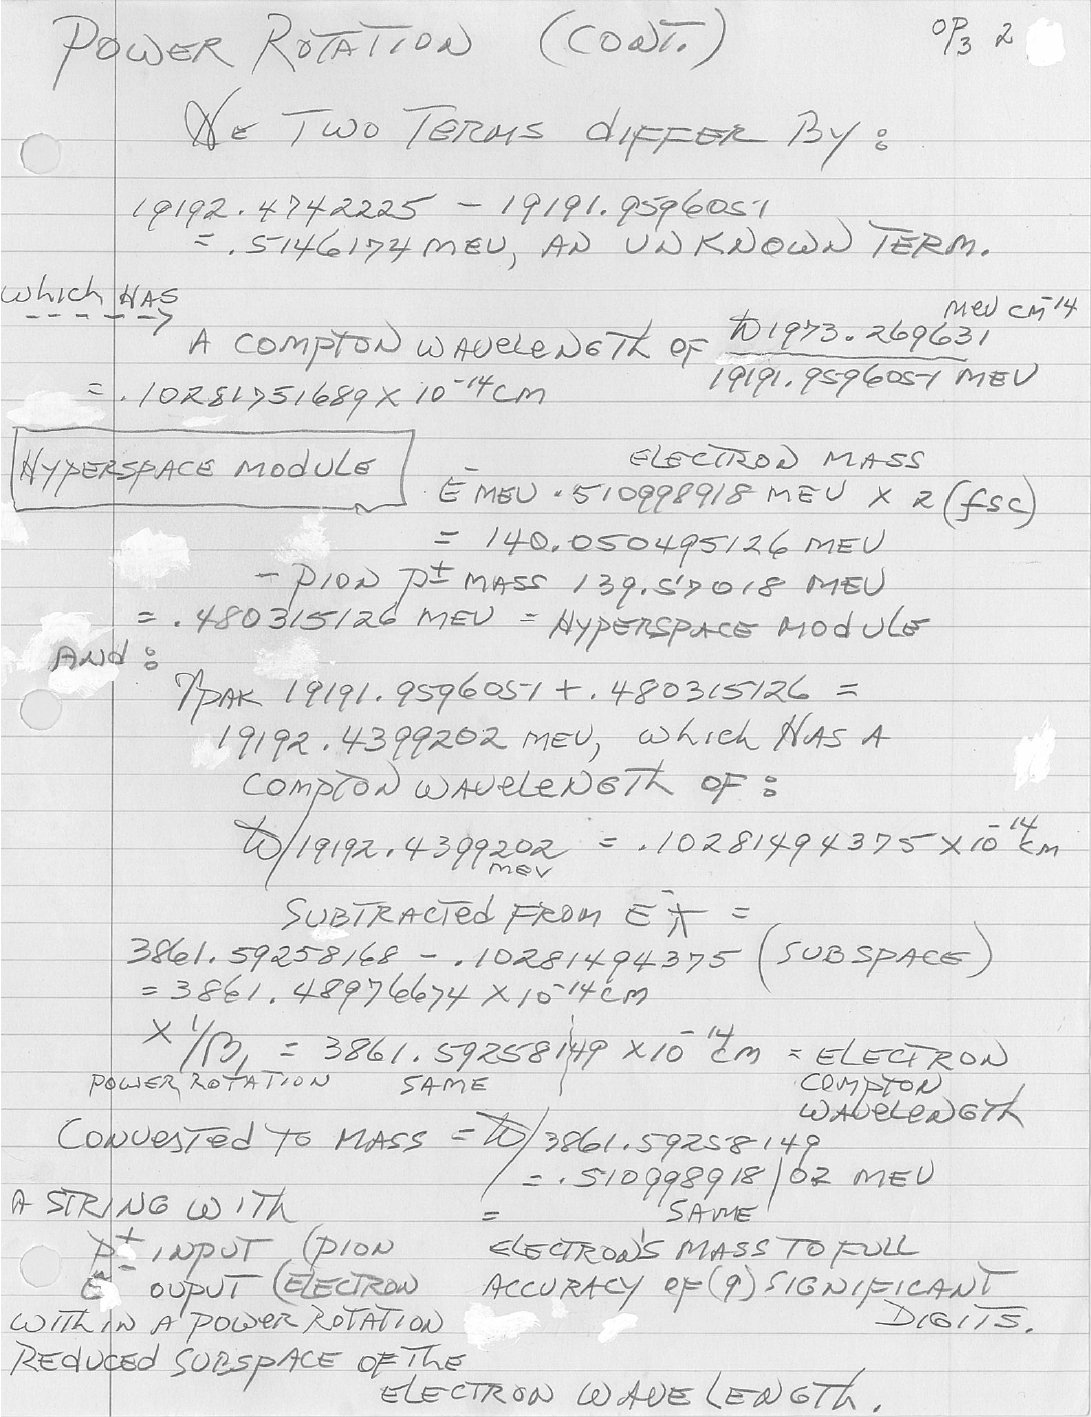 POWER ROTATION (CONT.) OP3 2
THE TWO TERMS DIFFER BY:
19192.4742225 - 19191.9596051
= .5146174 MEV, AN UNKNOWN TERM.
WHICH HAS
A COMPTON WAVELENGTH OF ħ 1973.269631 MEV CM^-14
19191.9596051 MEV
= .10281751689 X 10^-14 CM
HYPERSPACE MODULE
ELECTRON MASS
E^- MEV .510998918 MEV X 2(fsc)
= 140.050495126 MEV
- PION P± MASS 139.57018 MEV
= .480315126 MEV = HYPERSPACE MODULE
AND:
PAK 19191.9596051 + .480315126 =
19192.4399202 MEV, WHICH HAS A
COMPTON WAVELENGTH OF:
ħ/19192.4399202 MEV = .10281494375 X 10^-14 CM
SUBTRACTED FROM E^- ƛ =
3861.59258168 - .10281494375 (SUBSPACE)
= 3861.48976674 X 10^-14 CM
X 1/β1 = 3861.59258149 X 10^-14 CM = ELECTRON
POWER ROTATION SAME COMPTON
WAVELENGTH
CONVERTED TO MASS = ħ/3861.59258149
= .510998918/02 MEV
A STRING WITH = SAME
P± INPUT (PION ELECTRON'S MASS TO FULL
E^- OUPUT (ELECTRON ACCURACY OF (9) SIGNIFICANT
WITHIN A POWER ROTATION DIGITS.
REDUCED SUBSPACE OF THE
ELECTRON WAVELENGTH.